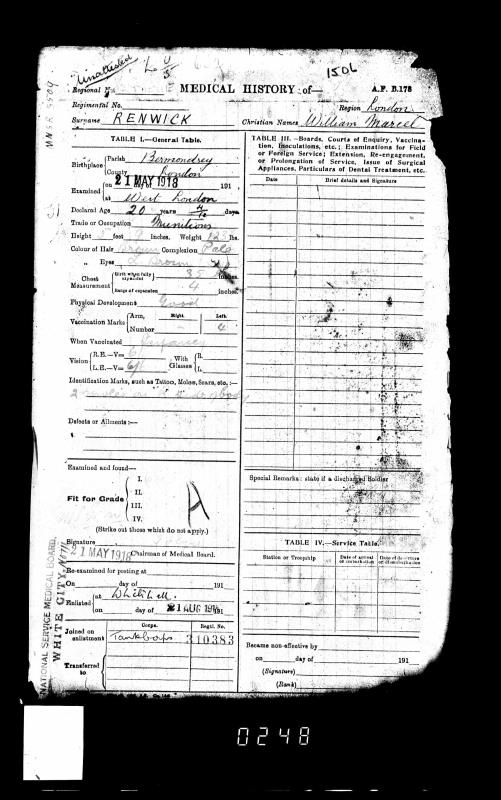 Unattested
1506
Regional No.
MEDICAL HISTORY of—
A.F. B.178
Regimental No.
Region London
Surname RENWICK
Christian Names William Marcel
TABLE I.—General Table.
Birthplace Parish Bermondsey
County London
Examined on 21 MAY 1918 day of 191
at West London
Declared Age 20 years days
Trade or Occupation Munitions
Height feet inches. Weight lbs.
Colour of Hair Brown Complexion Pale
„ Eyes Brown
Chest Measurement
Girth when fully expanded 35 inches.
Range of expansion 4 inches.
Physical Development Good
Vaccination Marks Arm, Number
Right. Left.
When Vaccinated Infancy
Vision R.E.—V= 6/
L.E.—V= 6/6
With Glasses R. L.
Identification Marks, such as Tattoo, Moles, Scars, etc.:—
Defects or Ailments :—
Examined and found—
Fit for Grade
I.
II.
III.
IV.
A
(Strike out those which do not apply.)
Signature
21 MAY 1918 Chairman of Medical Board.
Re-examined for posting at
On day of 191
Enlisted at Whitehall
on day of 21 AUG 1918 191
Corps. Regtl. No.
Joined on enlistment Tank Corps 310383
Transferred to
NATIONAL SERVICE MEDICAL BOARD
WHITE CITY
TABLE III.—Boards, Courts of Enquiry, Vaccination, Inoculations, etc.; Examinations for Field or Foreign Service; Extension, Re-engagement, or Prolongation of Service, Issue of Surgical Appliances, Particulars of Dental Treatment, etc.
Date Brief details and Signature
Special Remarks: state if a discharged Soldier
TABLE IV.—Service Table.
Station or Troopship Date of arrival or embarkation Date of departure or disembarkation
Became non-effective by
on day of 191
(Signature)
(Rank)
0248